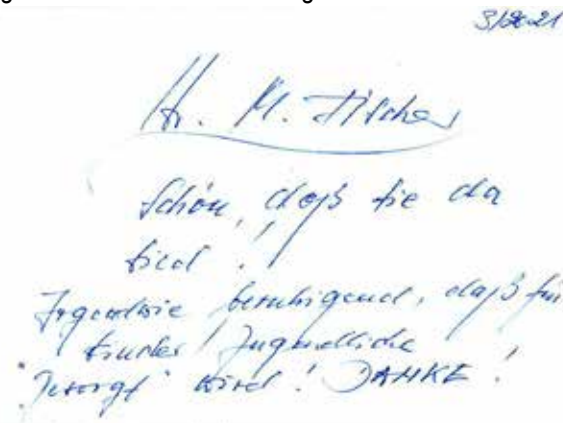 3/2021
Hr. M. Fischer
Schön, daß Sie da
sind!
Irgendwie beruhigend, daß für
Kinder/Jugendliche
"gesorgt" wird! DANKE!